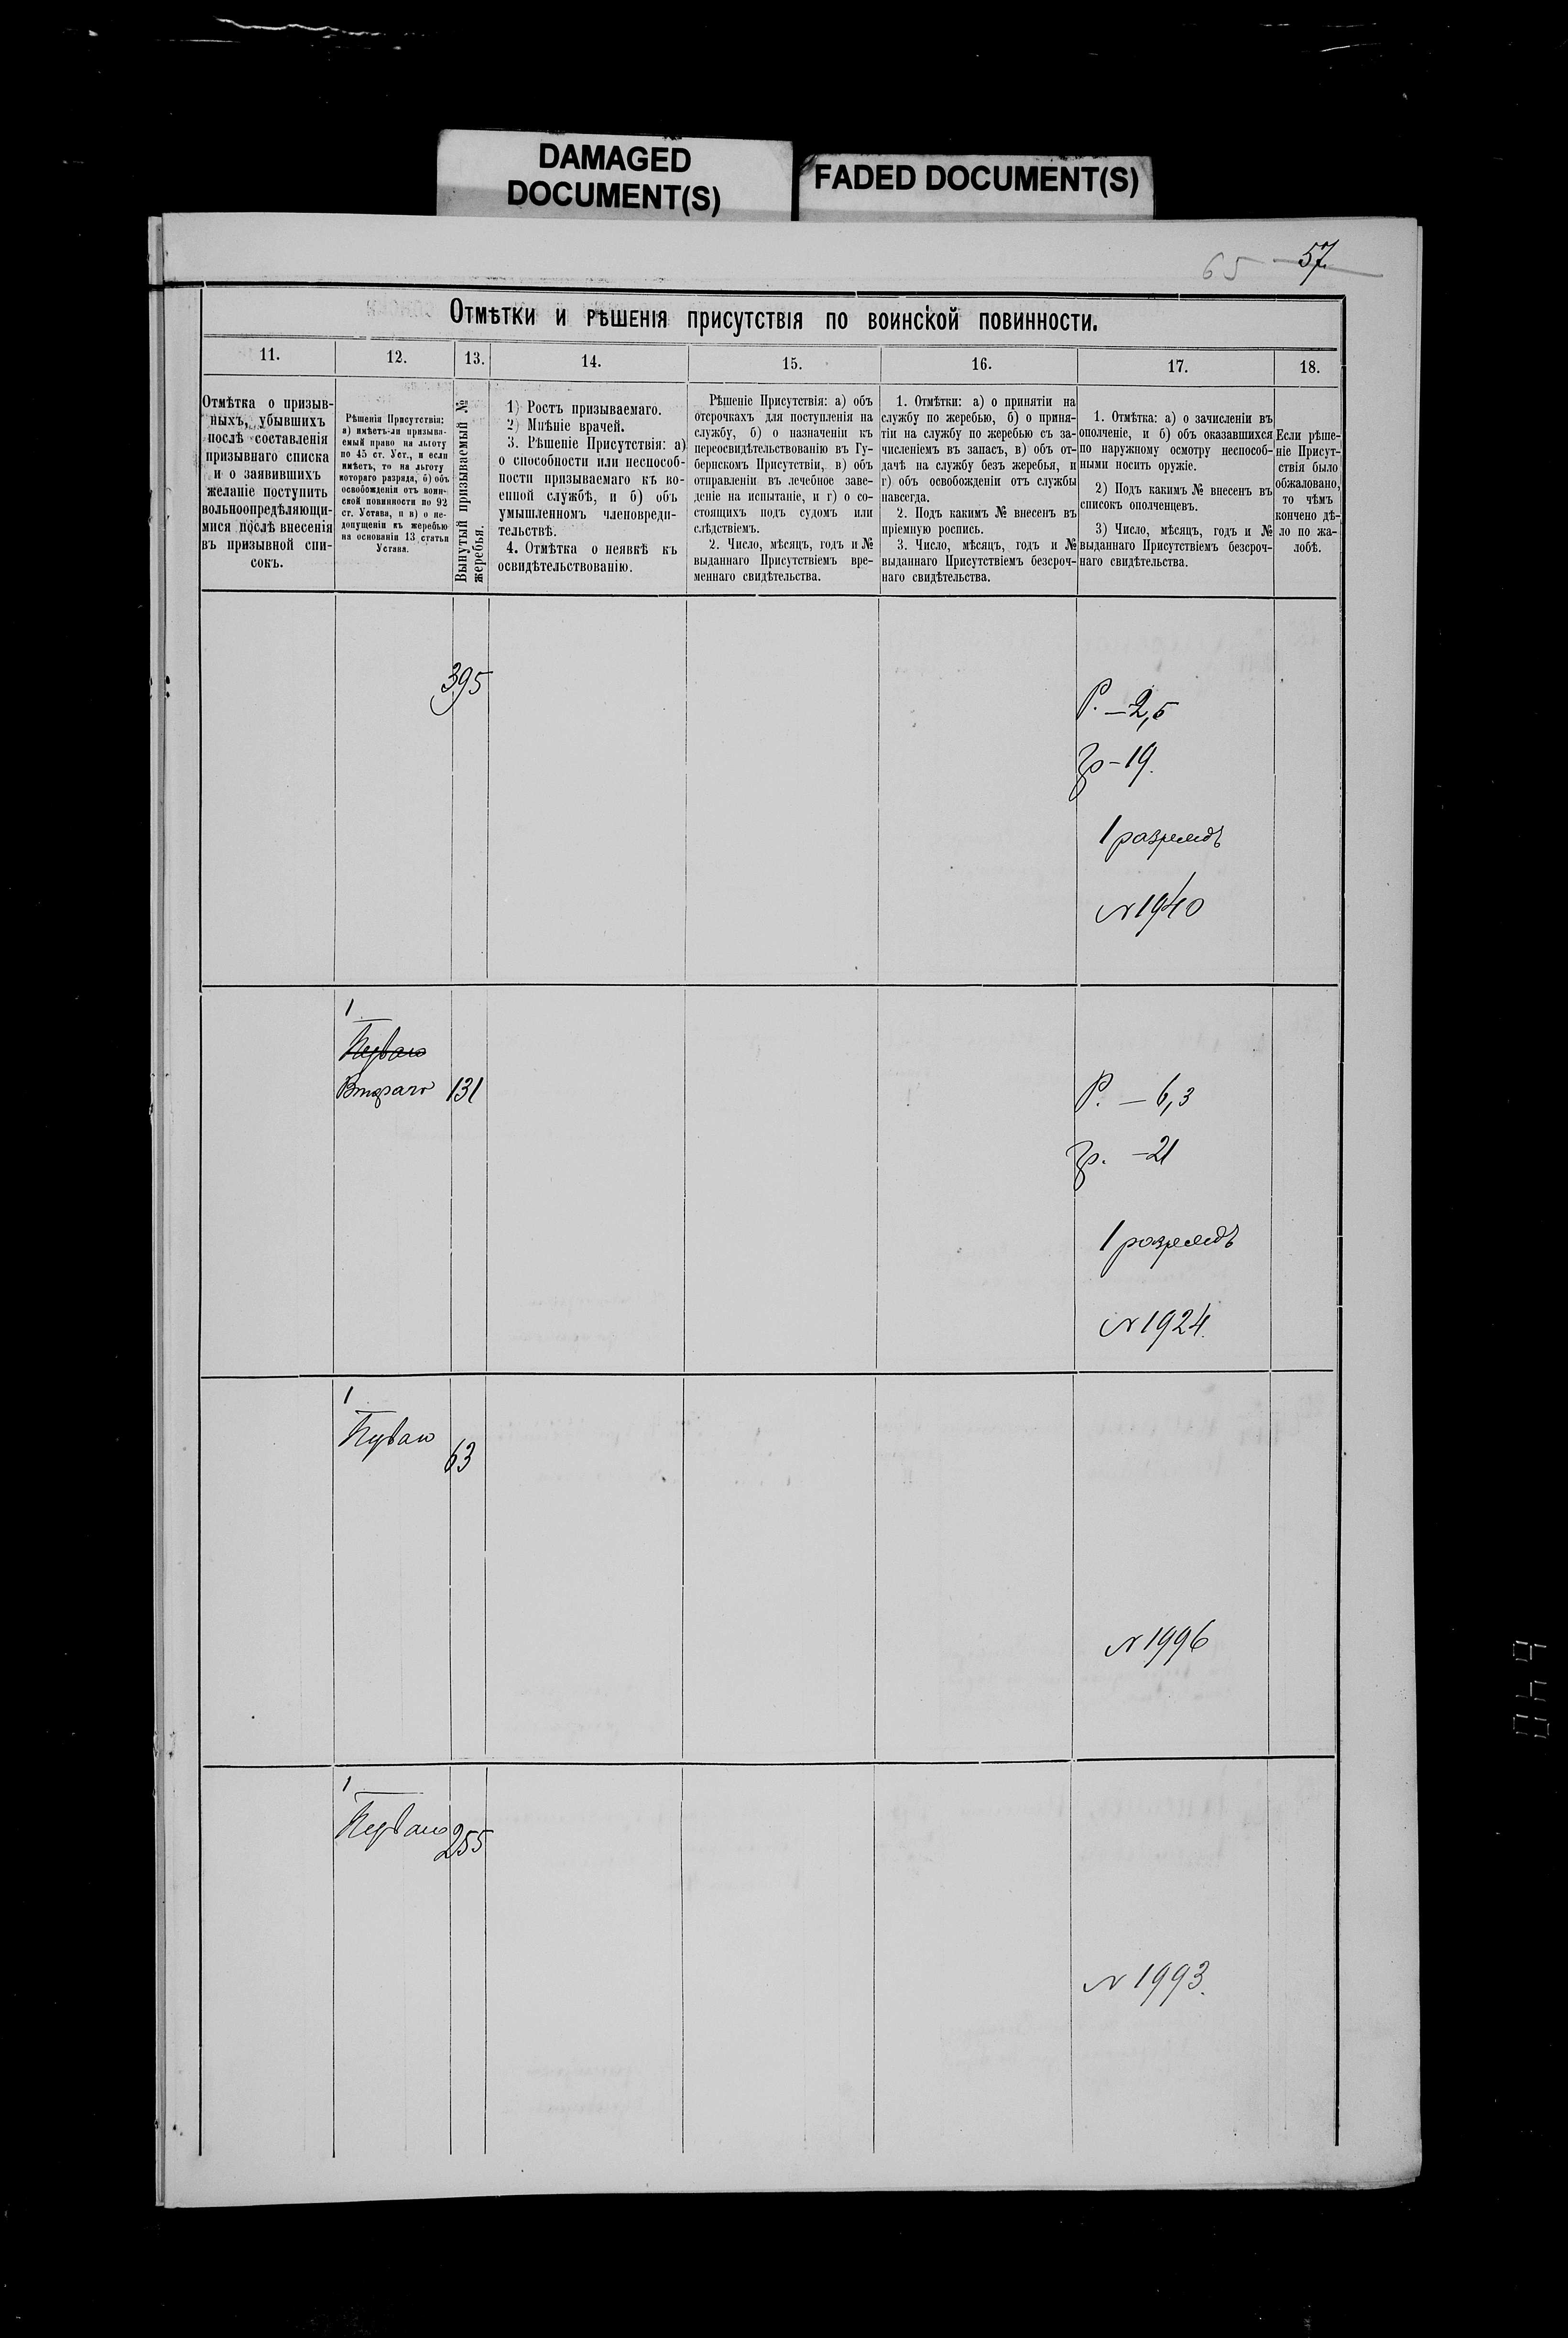 DAMAGED
DOCUMENT(S)
FADED DOCUMENT(S)
65 57.
Отмѣтки и рѣшенія присутствія по воинской повинности.
11.
12.
13.
14.
15.
16.
17.
18.
Отмѣтка о призыв-
ныхъ, убывшихъ
послѣ составленія
призывнаго списка
и о заявившихъ
желаніе поступить
вольноопредѣляющи-
мися послѣ внесенія
въ призывной спи-
сокъ.
Рѣшенія Присутствія:
а) имѣетъ-ли призыва-
емый право на льготу
по 45 ст. Уст., и если
имѣетъ, то на льготу
котораго разряда, б) объ
освобожденіи отъ воин-
ской повинности по 92
ст. Устава, и в) о не-
допущеніи къ жеребью
на основаніи 13 статьи
Устава.
Вынутый призываемый №
жеребья.
1) Ростъ призываемаго.
2) Мнѣніе врачей.
3. Рѣшеніе Присутствія: а)
о способности или неспособ-
ности призываемаго къ во-
енной службѣ, и б) объ
умышленномъ членовреди-
тельствѣ.
4. Отмѣтка о неявкѣ къ
освидѣтельствованію.
Рѣшеніе Присутствія: а) объ
отсрочкахъ для поступленія на
службу, б) о назначеніи къ
переосвидѣтельствованію въ Гу-
бернскомъ Присутствіи, в) объ
отправленіи въ лечебное заве-
деніе на испытаніе, и г) о со-
стоящихъ подъ судомъ или
слѣдствіемъ.
2. Число, мѣсяцъ, годъ и №
выданнаго Присутствіемъ вре-
меннаго свидѣтельства.
1. Отмѣтки: а) о принятіи на
службу по жеребью, б) о приня-
тіи на службу по жеребью съ за-
численіемъ въ запасъ, в) объ от-
дачѣ на службу безъ жеребья, и
г) объ освобожденіи отъ службы
навсегда.
2. Подъ какимъ № внесенъ въ
пріемную роспись.
3. Число, мѣсяцъ, годъ и №
выданнаго Присутствіемъ безсроч-
наго свидѣтельства.
1. Отмѣтка: а) о зачисленіи въ
ополченіе, и б) объ оказавшихся
по наружному осмотру неспособ-
ными носить оружіе.
2) Подъ какимъ № внесенъ въ
списокъ ополченцевъ.
3) Число, мѣсяцъ, годъ и №
выданнаго Присутствіемъ безсроч-
наго свидѣтельства.
Если рѣше-
ніе Присут-
ствія было
обжаловано,
то чѣмъ
кончено дѣ-
ло по жа-
лобѣ.
395
Р. — 2,5
гр - 19.
1 разрядъ
№ 1940
1
Перваго
Втораго 131
Р. — 6,3
гр. - 21
1 разрядъ
№ 1924.
1
Перваго
63
№ 1996
1
Перваго 255
№ 1993.
640